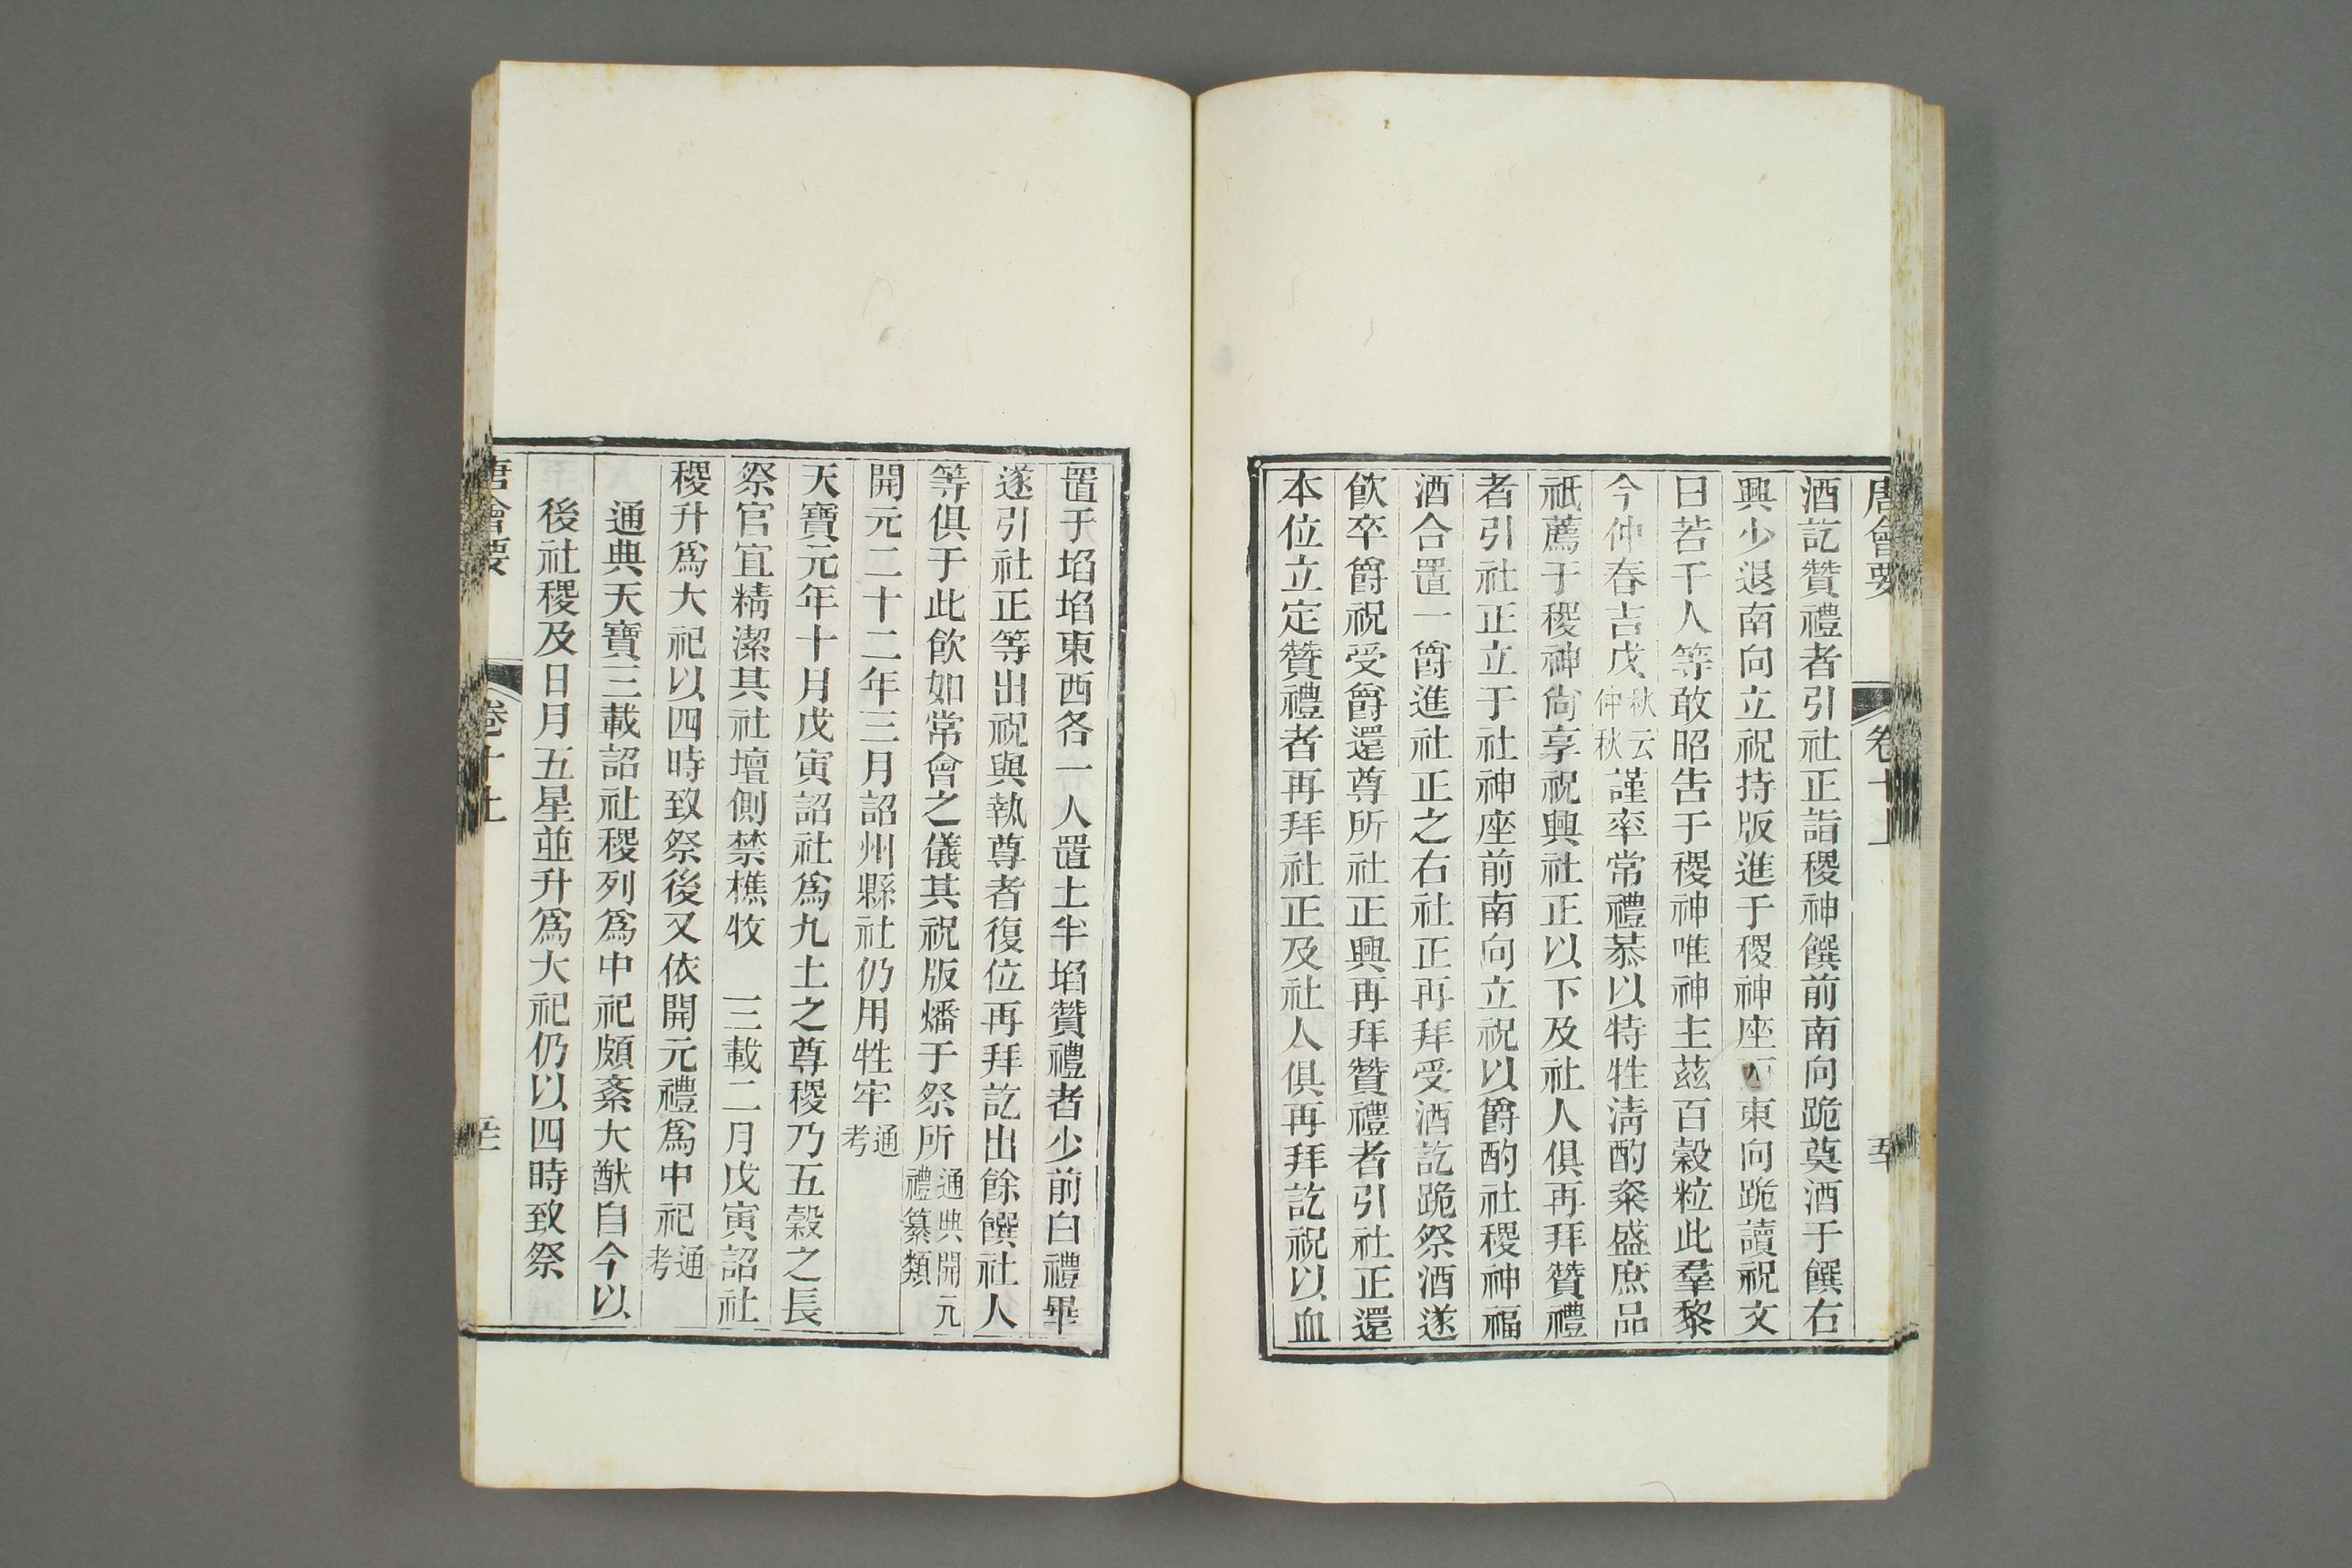 唐會要 卷十上
酒訖贊禮者引社正詣稷神饌前南向跪奠酒于饌右
興少退南向立祝持版進于稷神座西東向跪讀祝文
曰若干人等敢昭告于稷神唯神主茲百穀粒此羣黎
今仲春吉戊秋云仲秋謹率常禮恭以特牲淸酌粢盛庶品
祇薦于稷神尙享祝興社正以下及社人俱再拜贊禮
者引社正立于社神座前南向立祝以爵酌社稷神福
酒合置一爵進社正之右社正再拜受酒訖跪祭酒遂
飮卒爵祝受爵還尊所社正興再拜贊禮者引社正還
本位立定贊禮者再拜社正及社人俱再拜訖祝以血
置于埳埳東西各一人置土半埳贊禮者少前白禮畢
遂引社正等出祝與執尊者復位再拜訖出餘饌社人
等俱于此飮如常會之儀其祝版燔于祭所通典開元禮纂類
開元二十二年三月詔州縣社仍用牲牢通考
天寶元年十月戊寅詔社爲九土之尊稷乃五穀之長
祭官宜精潔其社壇側禁樵牧　三載二月戊寅詔社
稷升爲大祀以四時致祭後又依開元禮爲中祀通考
通典天寶三載詔社稷列爲中祀頗紊大猷自今以
後社稷及日月五星並升爲大祀仍以四時致祭
唐會要 卷十上